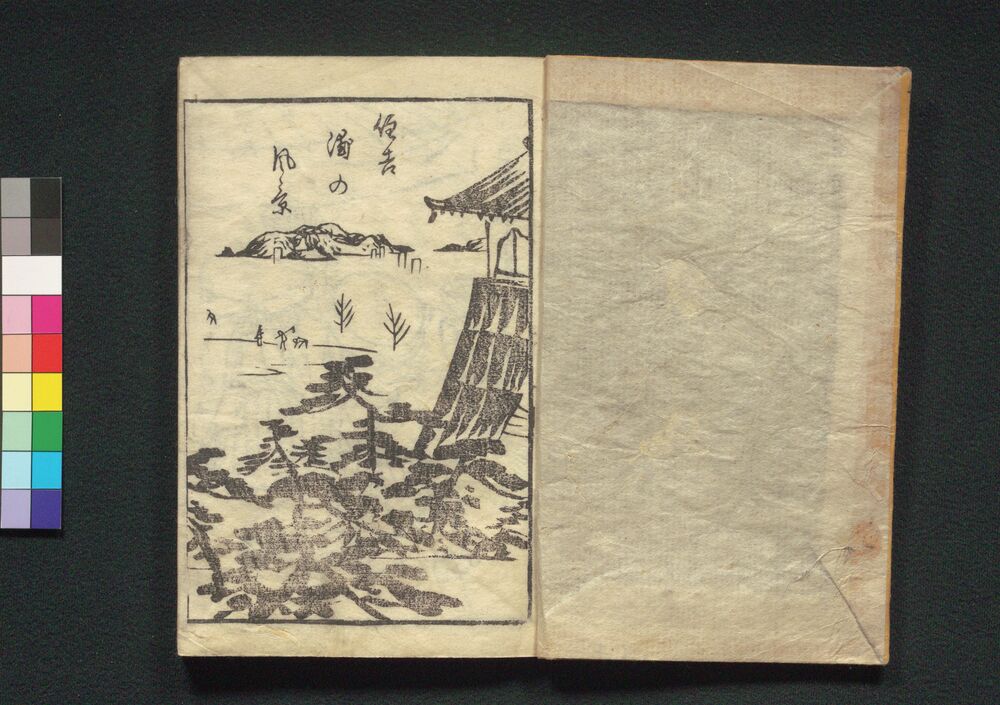 住吉
浦の
風景